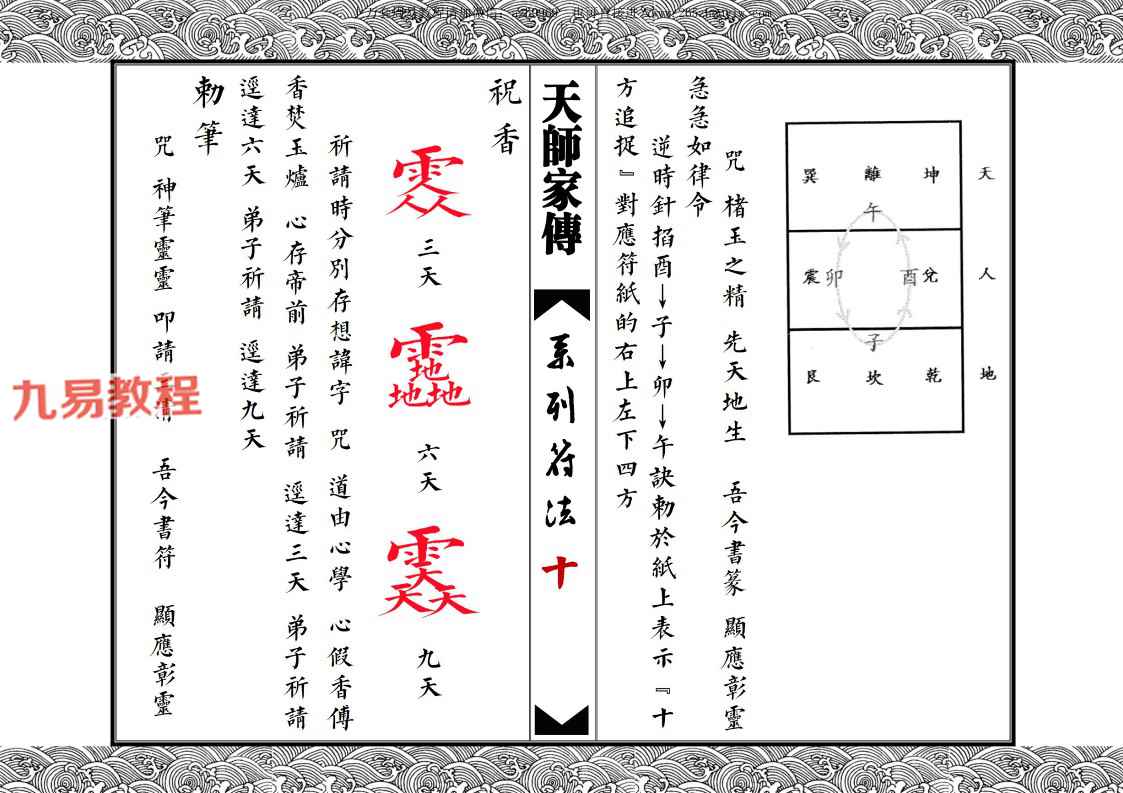 巽 離 坤 天
午
震 卯 酉 兌 人
子
艮 坎 乾 地
咒 楮玉之精 先天地生 吾今書篆 顯應彰靈
急急如律令
逆時針掐酉→子→卯→午訣勅於紙上表示『十
方追捉』對應符紙的右上左下四方
天師家傳
系列符法
十
祝香
三天
六天
九天
祈請時分別存想諱字 咒 道由心學 心假香傅
香焚玉爐 心存帝前 弟子祈請 逕達三天 弟子祈請
逕達六天 弟子祈請 逕達九天
勅筆
咒 神筆靈靈 叩請三清 吾今書符 顯應彰靈
九易教程